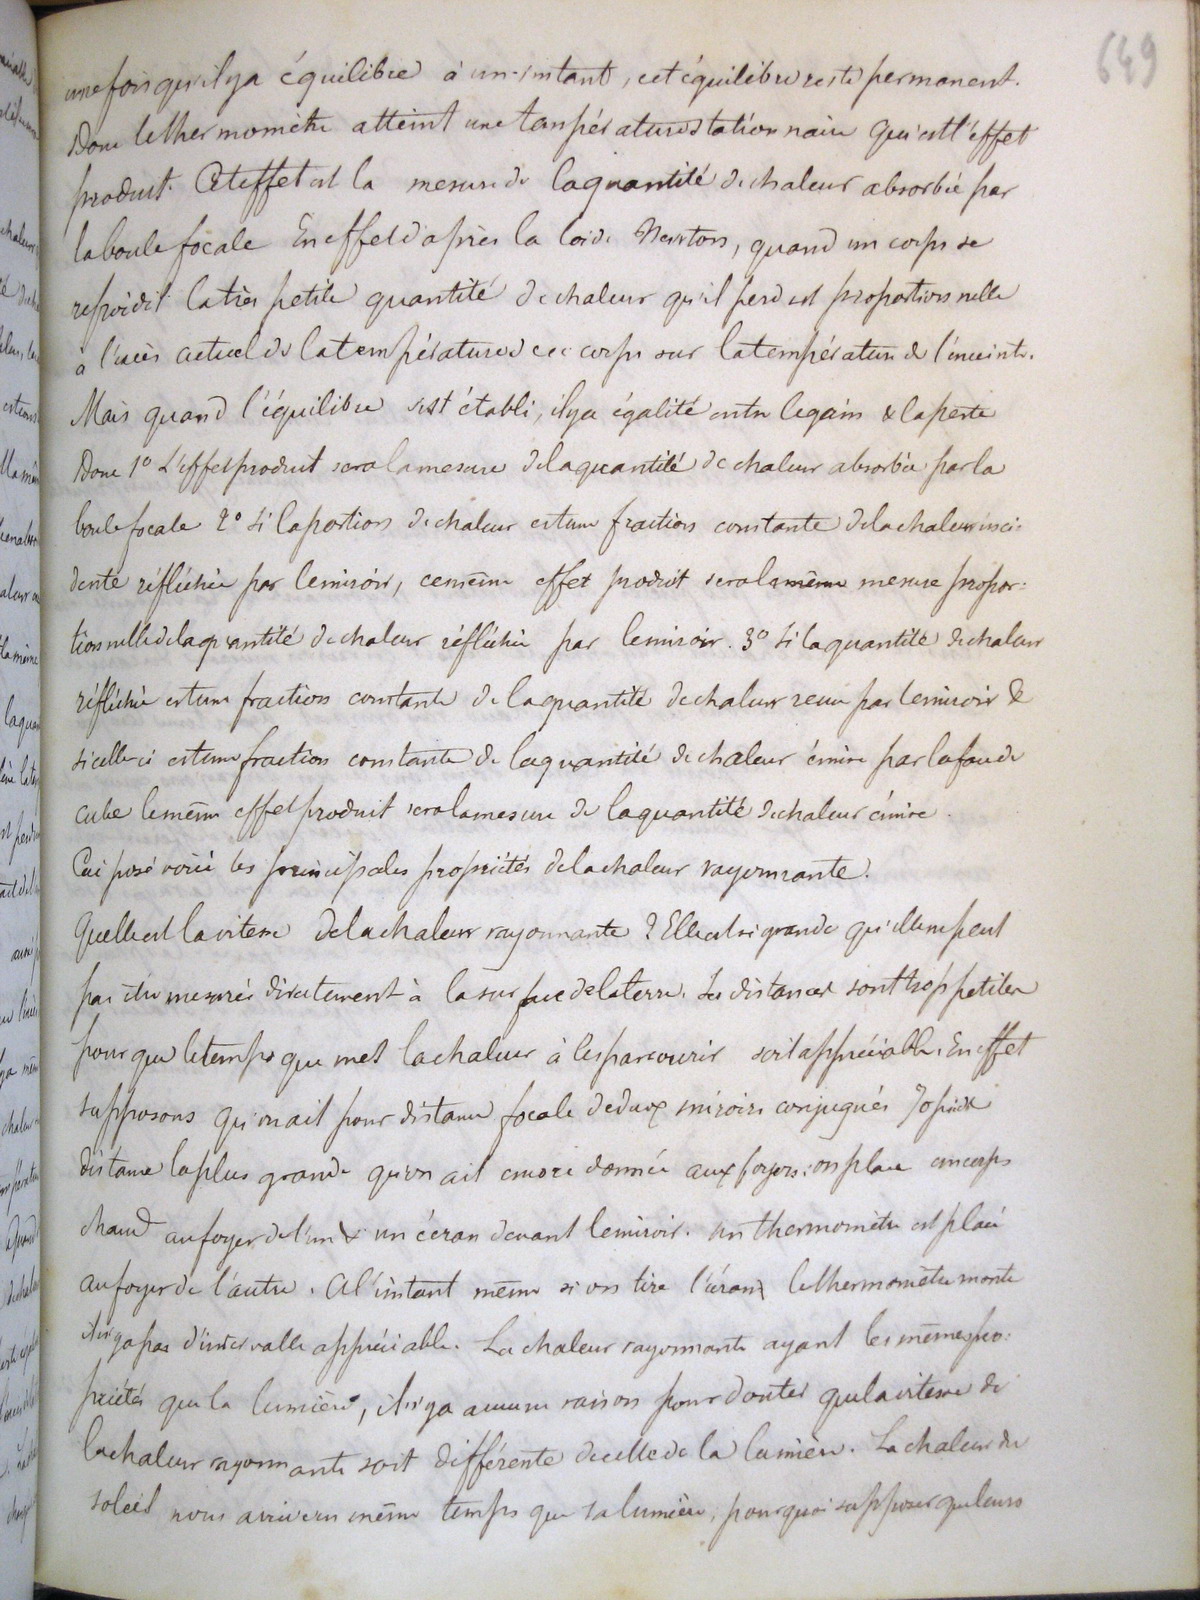 649
une fois qu'il y a équilibre à un instant, cet équilibre reste permanent.
Donc le thermomètre atteint une température stationnaire qui est l'effet
produit. Cet effet est la mesure de la quantité de chaleur absorbée par
la boule focale En effet d'après la loi de Newton, quand un corps se
refroidit la très petite quantité de chaleur qu'il perd est proportionnelle
à l'excès actuel de la température de ce corps sur la température de l'enceinte.
Mais quand l'équilibre s'est établi, il y a égalité entre le gain & la perte
Donc 1° L'effet produit sera la mesure de la quantité de chaleur absorbée par la
boule focale 2° Si la portion de chaleur est une fraction constante de la chaleur inci-
dente réfléchie par le miroir, ce même effet produit sera la même mesure propor-
tionnelle de la quantité de chaleur réfléchie par le miroir. 3° Si la quantité de chaleur
réfléchie est une fraction constante de la quantité de chaleur reçue par le miroir &
si celle-ci est une fraction constante de la quantité de chaleur émise par la face du
cube le même effet produit sera la mesure de la quantité de chaleur émise.
Ceci posé voici les principales propriétés de la chaleur rayonnante.
Quelle est la vitesse de la chaleur rayonnante ? Elle est si grande qu'elle ne peut
pas être mesurée directement à la surface de la terre. Les distances sont trop petites
pour que le temps que met la chaleur à les parcourir soit appréciable. En effet
supposons qu'on ait pour distance focale de deux miroirs conjugués 70 pieds
distance la plus grande qu'on ait encore donnée aux foyers: on place un corps
chaud au foyer de l'un & un écran devant le miroir. un thermomètre est placé
au foyer de l'autre. A l'instant même si on tire l'écran le thermomètre monte
il n'y a pas d'intervalle appréciable. La chaleur rayonnante ayant les mêmes pro-
priétés que la lumière, il n'y a aucune raison pour douter que la vitesse de
la chaleur rayonnante soit différente de celle de la lumière. La chaleur du
soleil nous arrive en même temps que sa lumière, pourquoi supposer que leurs